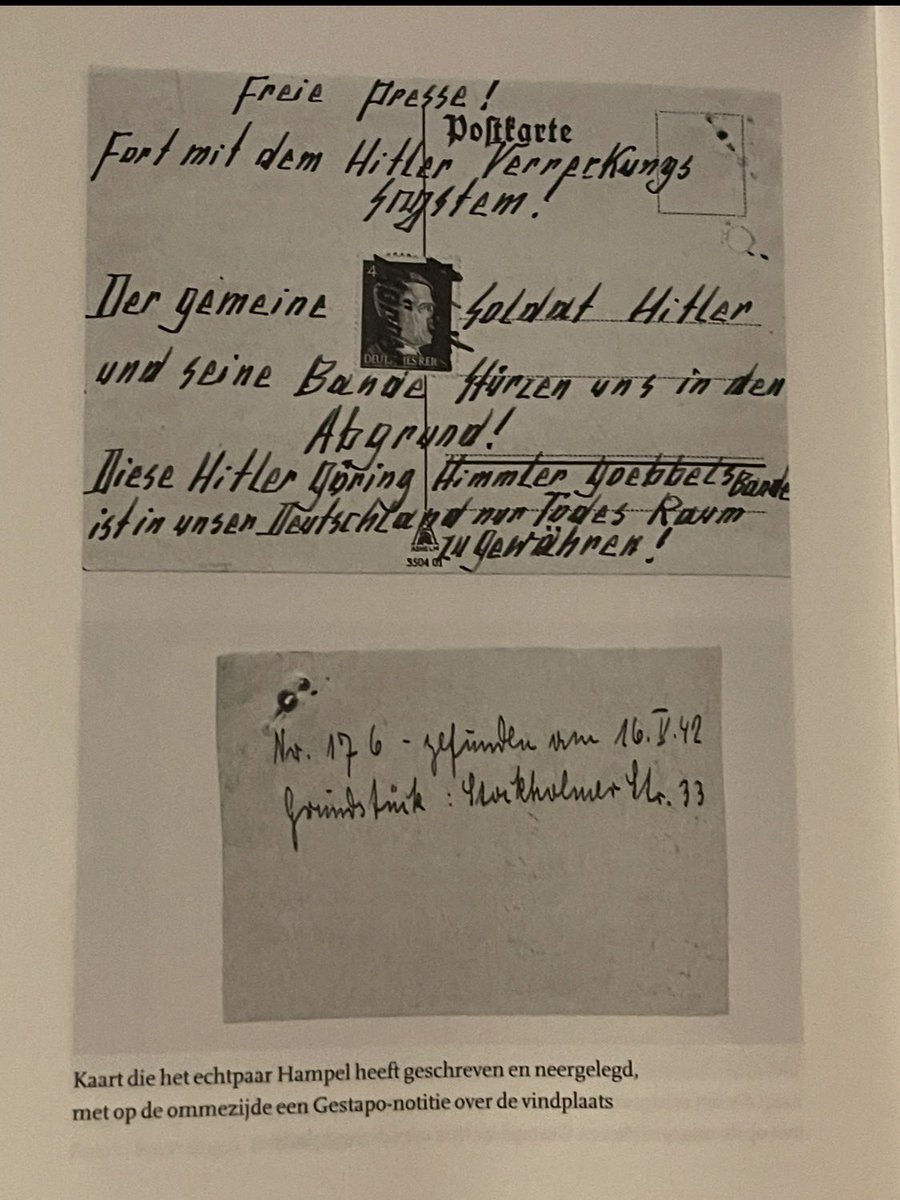 Freie Presse!
Postkarte
Fort mit dem Hitler Verreckungs
System!
4
Der gemeine Soldat Hitler
DEUTSCHES REICH
und seine Bande Stürzen uns in den
Abgrund!
Diese Hitler Göring Himmler Goebbels Bande
ist in unser Deutschland nur Todes Raum
zu gewähren!
3504 01
Nr. 176 - gefunden am 16.V.42
Grundstück: Stockholmer Str. 33
Kaart die het echtpaar Hampel heeft geschreven en neergelegd,
met op de ommezijde een Gestapo-notitie over de vindplaats